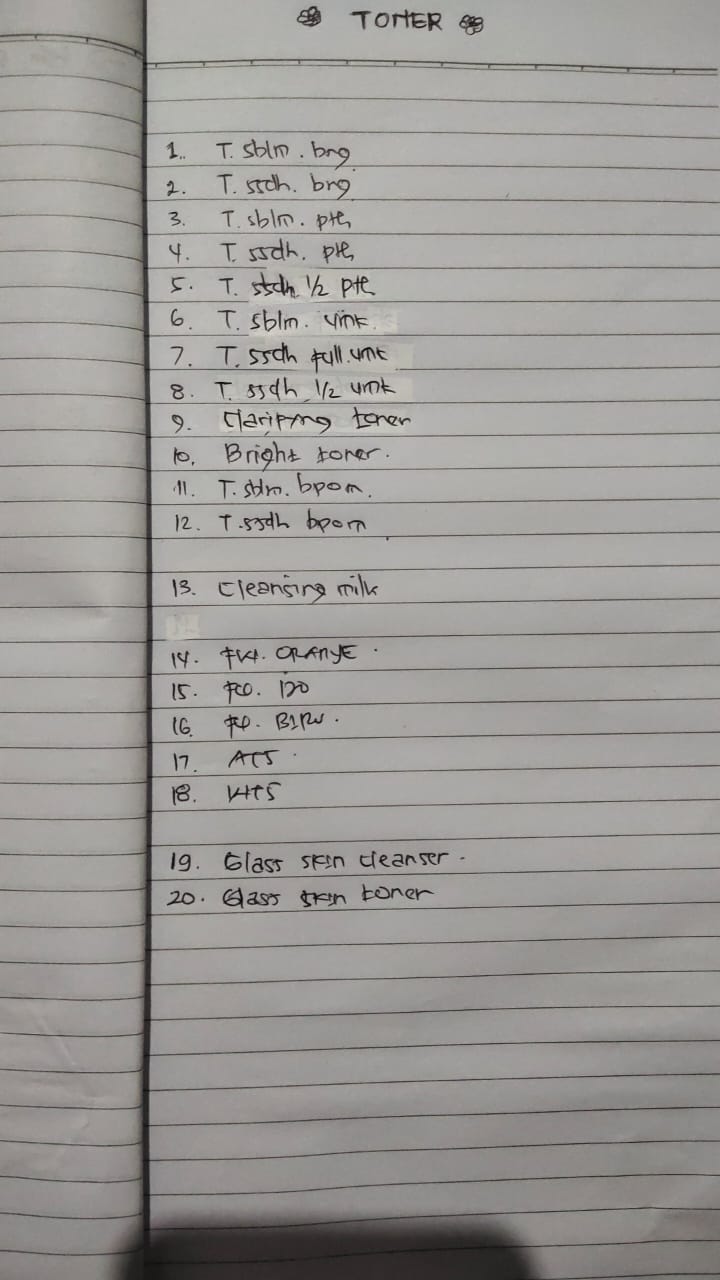 TONER
1. T. sblm. brg
2. T. ssdh. brg
3. T. sblm. pth
4. T. ssdh. pth
5. T. ssdh 1/2 pth
6. T. sblm.
7. T. ssdh full.
8. T. ssdh 1/2
9. Clarifyng toner
10. Bright toner.
11. T. sblm. bpom.
12. T. ssdh bpom
13. Cleansing milk
14. ORANYE.
15. 120
16. BIRU.
17.
18.
19. Glass skin cleanser.
20. Glass skin toner